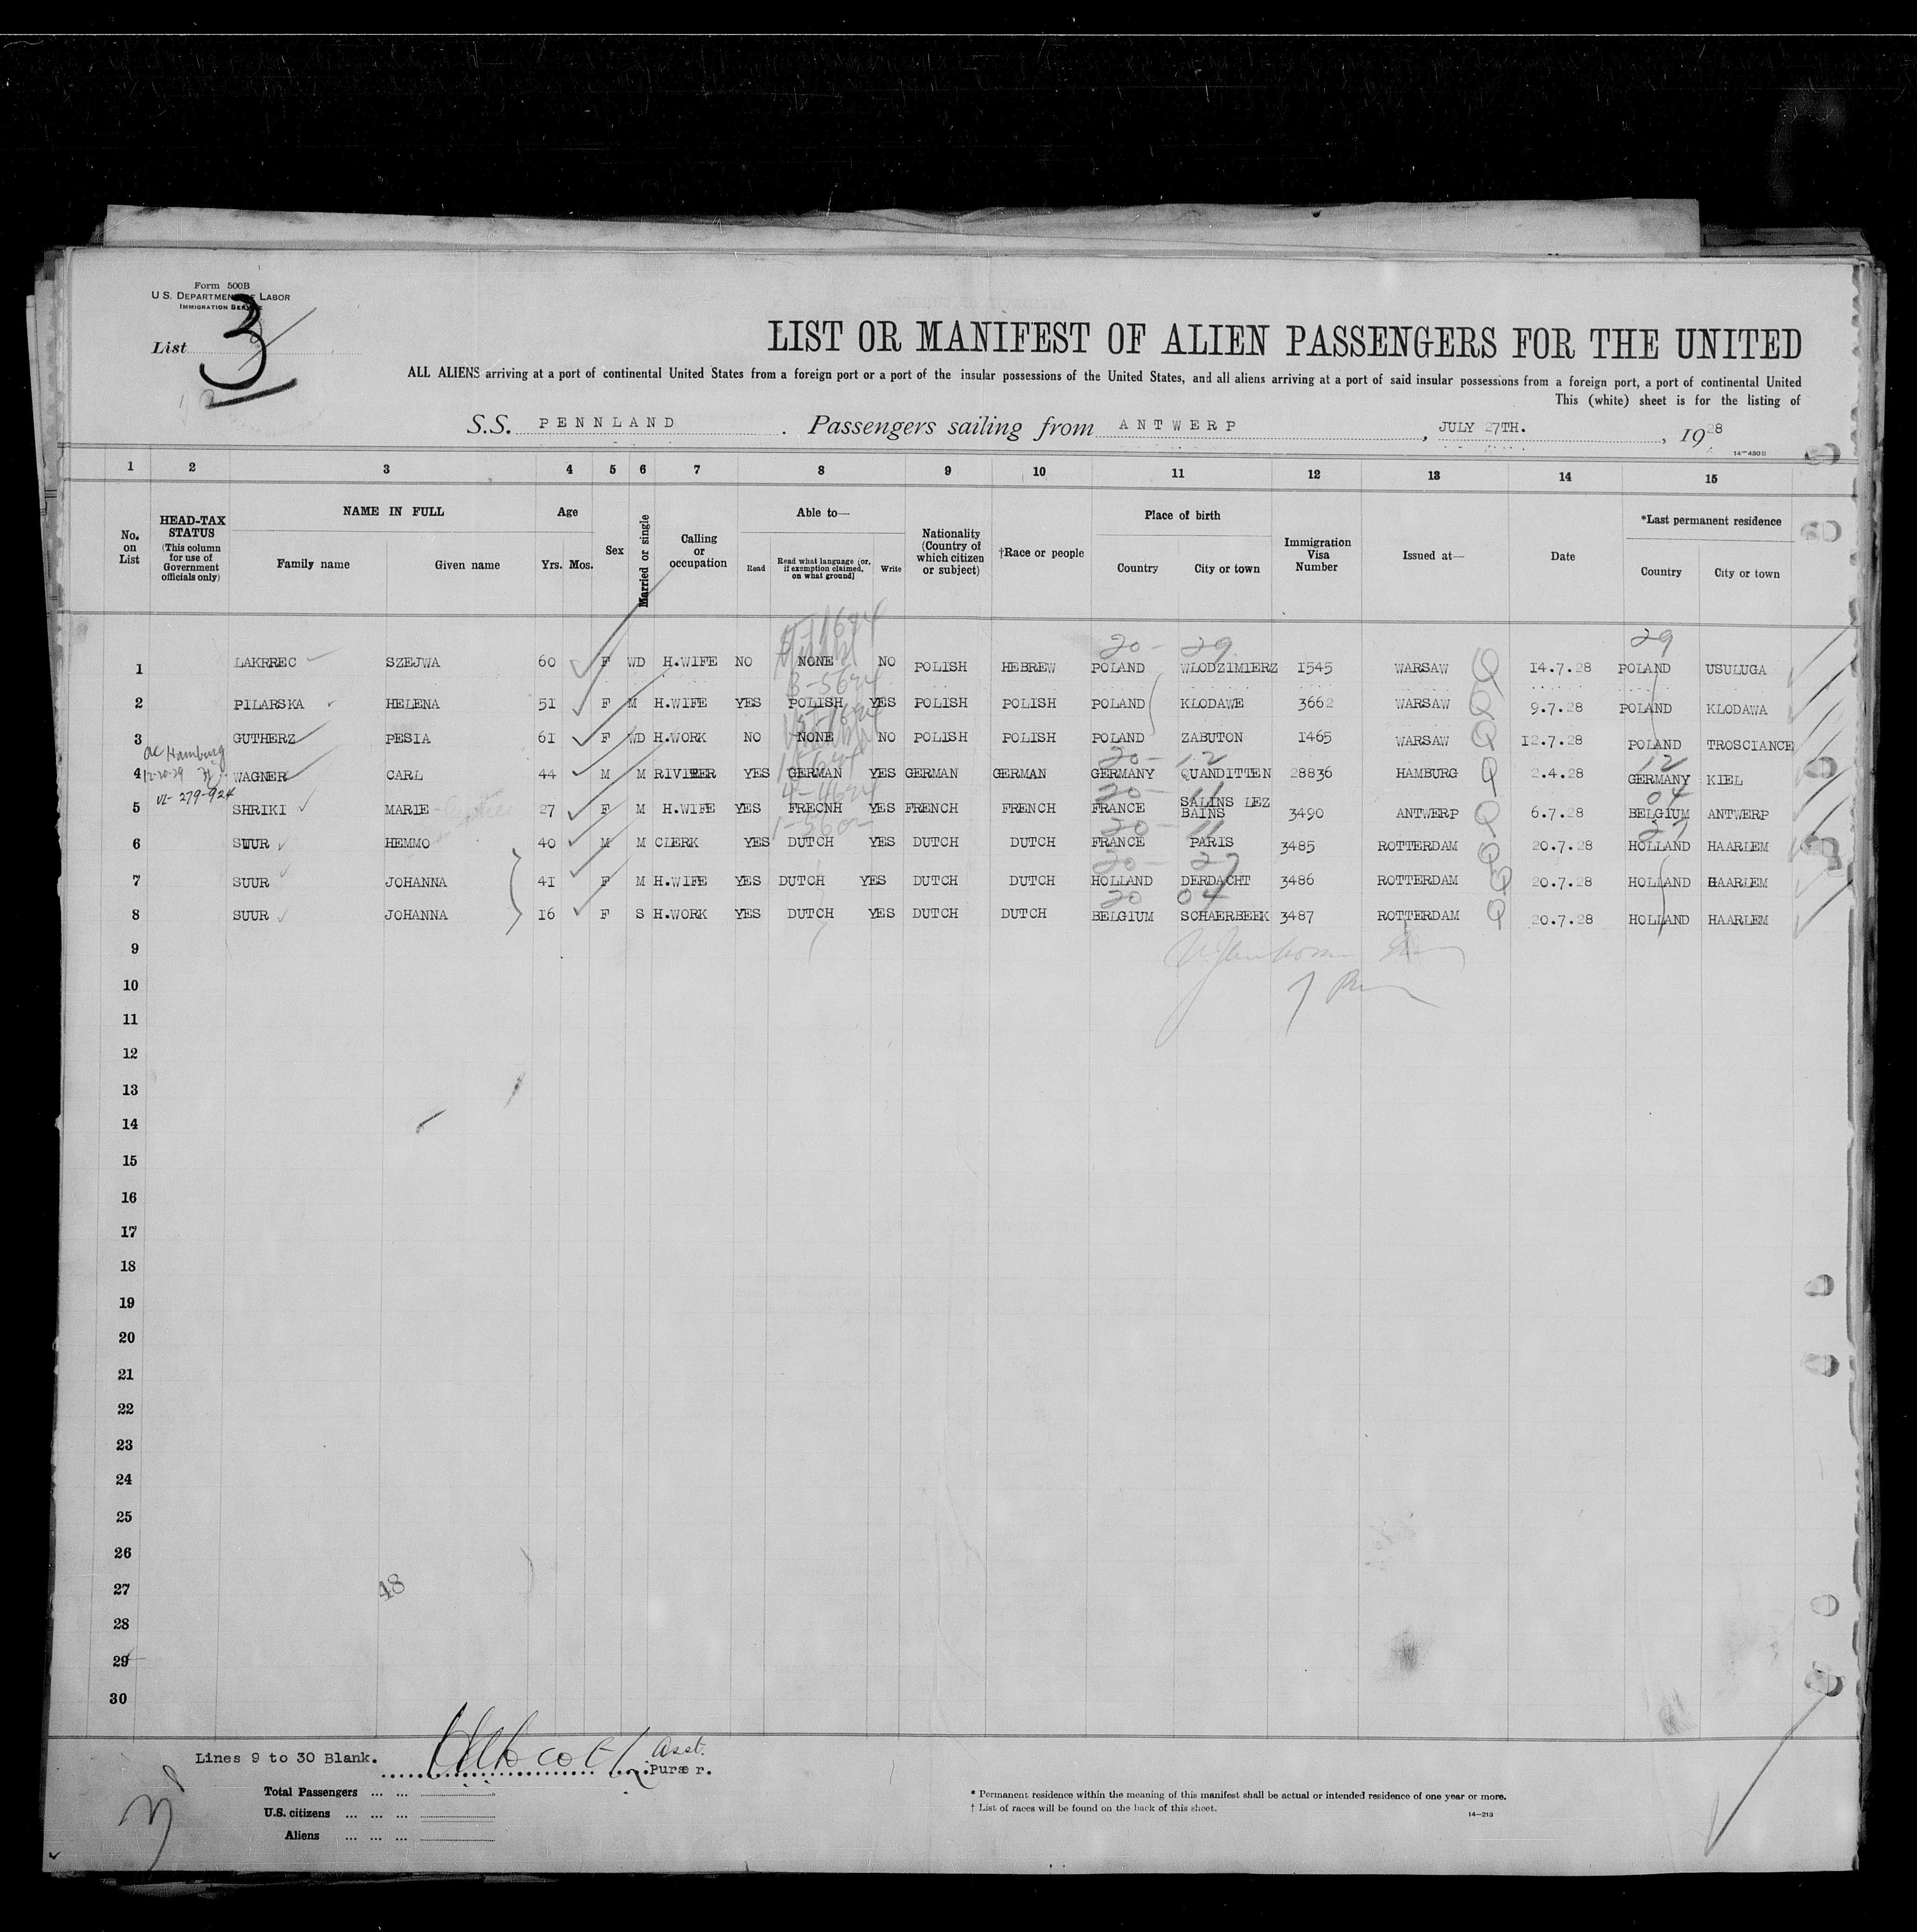 Form 500B
U.S. DEPARTMENT OF LABOR
IMMIGRATION SERVICE
List 3
LIST OR MANIFEST OF ALIEN PASSENGERS FOR THE UNITED
ALL ALIENS arriving at a port of continental United States from a foreign port or a port of the insular possessions of the United States, and all aliens arriving at a port of said insular possessions from a foreign port, a port of continental United
This (white) sheet is for the listing of
S.S. PENNLAND . Passengers sailing from ANTWERP , JULY 27TH. , 1928
14—430B
1 2 3 4 5 6 7 8 9 10 11 12 13 14 15
No. on List
HEAD-TAX STATUS (This column for use of Government officials only)
NAME IN FULL
Family name Given name
Age
Yrs. Mos.
Sex
Married or single
Calling or occupation
Able to—
Read
Read what language [or, if exemption claimed, on what ground]
Write
Nationality (Country of which citizen or subject)
†Race or people
Place of birth
Country City or town
Immigration Visa Number
Issued at—
Date
*Last permanent residence
Country City or town
20 - 29 29
1 LAKRREC SZEJWA 60 F WD H.WIFE NO NONE NO POLISH HEBREW POLAND WLODZIMIERZ 1545 WARSAW Q 14.7.28 POLAND USULUGA
2 PILARSKA HELENA 51 F M H.WIFE YES POLISH YES POLISH POLISH POLAND KLODAWE 3662 WARSAW Q 9.7.28 POLAND KLODAWA
3 GUTHERZ PESIA 61 F WD H.WORK NO NONE NO POLISH POLISH POLAND ZABUTON 1465 WARSAW Q 12.7.28 POLAND TROSCIANCE
Hamburg 20 - 12 12
12-20-29
4 WAGNER CARL 44 M M RIVIRER YES GERMAN YES GERMAN GERMAN GERMANY QUANDITTEN 28836 HAMBURG Q 2.4.28 GERMANY KIEL
VL- 279-924 20 - 11 04
5 SHRIKI MARIE 27 F M H.WIFE YES FRECNH YES FRENCH FRENCH FRANCE SALINS LEZ BAINS 3490 ANTWERP Q 6.7.28 BELGIUM ANTWERP
20 - 11 27
6 SUUR HEMMO 40 M M CLERK YES DUTCH YES DUTCH DUTCH FRANCE PARIS 3485 ROTTERDAM Q 20.7.28 HOLLAND HAARLEM
20 - 27
7 SUUR JOHANNA 41 F M H.WIFE YES DUTCH YES DUTCH DUTCH HOLLAND DERDACHT 3486 ROTTERDAM Q 20.7.28 HOLLAND HAARLEM
20 04
8 SUUR JOHANNA 16 F S H.WORK YES DUTCH YES DUTCH DUTCH BELGIUM SCHAERBEEK 3487 ROTTERDAM Q 20.7.28 HOLLAND HAARLEM
9
10
11
12
13
14
15
16
17
18
19
20
21
22
23
24
25
26
27
48
28
29
30
Lines 9 to 30 Blank.
Asst.
Purser.
Total Passengers ... ...
U.S. citizens ... ... ...
Aliens ... ... ...
* Permanent residence within the meaning of this manifest shall be actual or intended residence of one year or more.
† List of races will be found on the back of this sheet.
14—213